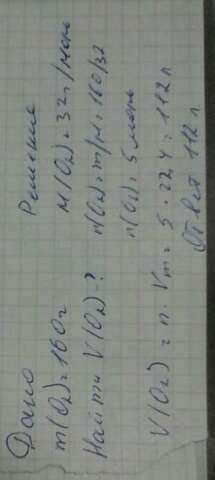 Дано
m(O₂)=160г
Найти V(O₂)-?
Решение
M(O₂)=32г/моль
n(O₂)=m/M=160/32
n(O₂)=5моль
V(O₂)=n·Vm=5·22,4=112л
Ответ 112л